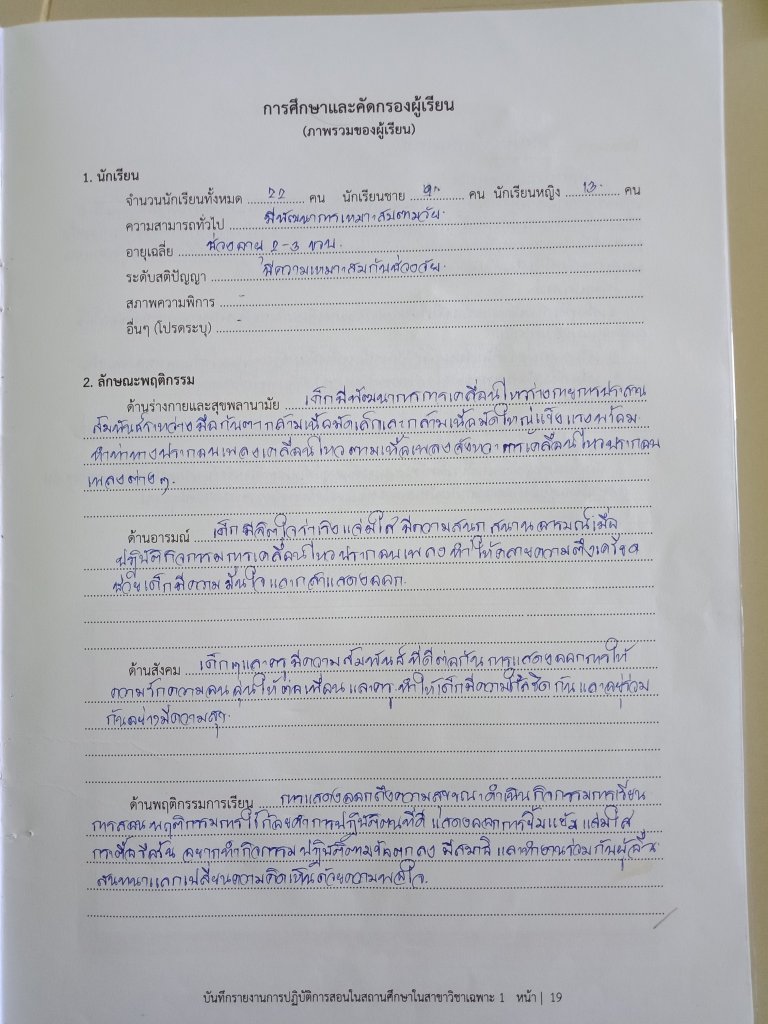 การศึกษาและคัดกรองผู้เรียน
(ภาพรวมของผู้เรียน)
1. นักเรียน
จำนวนนักเรียนทั้งหมด 22 คน นักเรียนชาย 9 คน นักเรียนหญิง 13 คน
ความสามารถทั่วไป มีพัฒนาการเหมาะสมตามวัย
อายุเฉลี่ย ช่วงอายุ 2-3 ขวบ
ระดับสติปัญญา มีความเหมาะสมกับช่วงวัย
สภาพความพิการ -
อื่นๆ (โปรดระบุ) -
2. ลักษณะพฤติกรรม
ด้านร่างกายและสุขพลานามัย เด็กมีพัฒนาการการเคลื่อนไหวร่างกายการประสาน
สัมพันธ์ระหว่างมือกับตากล้ามเนื้อมัดเล็กและกล้ามเนื้อมัดใหญ่แข็งแรงพร้อม
ทำท่าทางประกอบเพลงเคลื่อนไหวตามเนื้อเพลงจังหวะการเคลื่อนไหวประกอบ
เพลงต่างๆ.
ด้านอารมณ์ เด็กมีจิตใจร่าเริงแจ่มใส มีความสนุกสนานอารมณ์เมื่อ
ปฏิบัติกิจกรรมการเคลื่อนไหวประกอบเพลง ทำให้คลายความตึงเครียด
ช่วยเด็กมีความมั่นใจและกล้าแสดงออก.
ด้านสังคม เด็กๆและครูมีความสัมพันธ์ที่ดีต่อกัน การแสดงออกการให้
ความรักความอบอุ่นให้ต่อเพื่อนและครู ทำให้เด็กมีความใกล้ชิดกันและอยู่ร่วม
กันอย่างมีความสุข.
ด้านพฤติกรรมการเรียน การแสดงออกถึงความสุขขณะดำเนินกิจกรรมการเรียน
การสอน พฤติกรรมการใช้ถ้อยคำการปฏิบัติตนที่ดี แสดงออกการยิ้มแย้มแจ่มใส
กระตือรือร้น อยากทำกิจกรรม ปฏิบัติตามข้อตกลง มีสมาธิ และทำงานร่วมกับผู้อื่น
สนทนาแลกเปลี่ยนความคิดเห็นด้วยความพอใจ.
บันทึกรายงานการปฏิบัติการสอนในสถานศึกษาในสาขาวิชาเฉพาะ 1 หน้า | 19